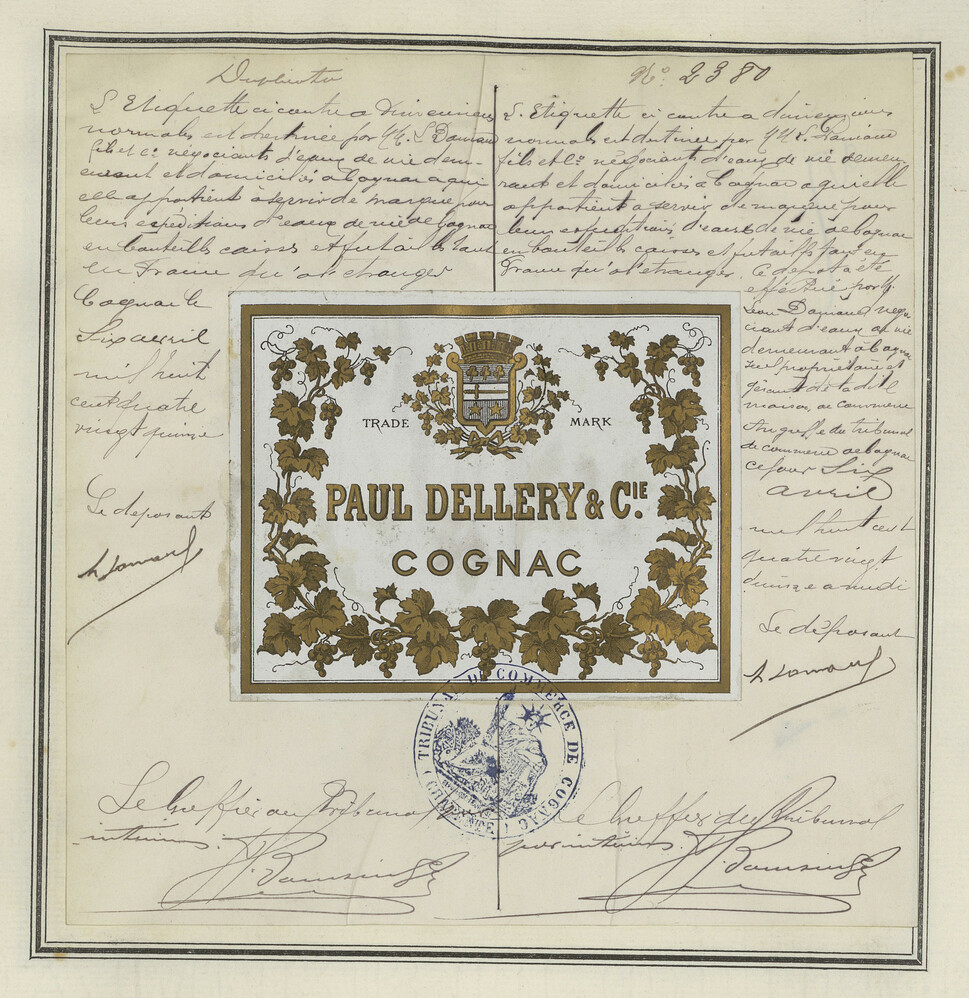 Duplicata
L'Etiquette ci contre a dimensions
normales est destinée par MM. L. Damaur
fils et Cie négociants d'eaux de vie dem-
eurant et domiciliés à Cognac a qui
elle appartient à servir de marque pour
leurs expéditions d'eaux de vie de Cognac
en bouteilles caisses et futailles tant
en France qu'a l'etranger
Cognac le
Six avril
mil huit
cent quatre
vingt quinze
Le déposant
No 2380
L'Etiquette ci contre a dimensions
normales est destinée par MM. L. Damaur
fils et Cie négociants d'eaux de vie demeu
rant et domiciliés à Cognac a qui elle
appartient a servir de marque pour
leurs expéditions d'eaux de vie de Cognac
en bouteilles caisses et futailles tant en
France qu'a l'etranger. Ce dépot a été
effectué par M.
Léon Damaur négo
ciant d'eaux de vie
demeurant à Cognac
propriétaire et
gérant de la dite
maison de commerce
Au greffe du tribunal
de commerce de Cognac
ce jour Six
avril
mil huit cent
quatre vingt
quinze a midi
Le déposant
TRADE MARK
PAUL DELLERY & CIE.
COGNAC
TRIBUNAL DE COMMERCE DE COGNAC (CHARENTE)
Le Greffier du Tribunal
par intérim.
Le Greffier du Tribunal
par intérim.